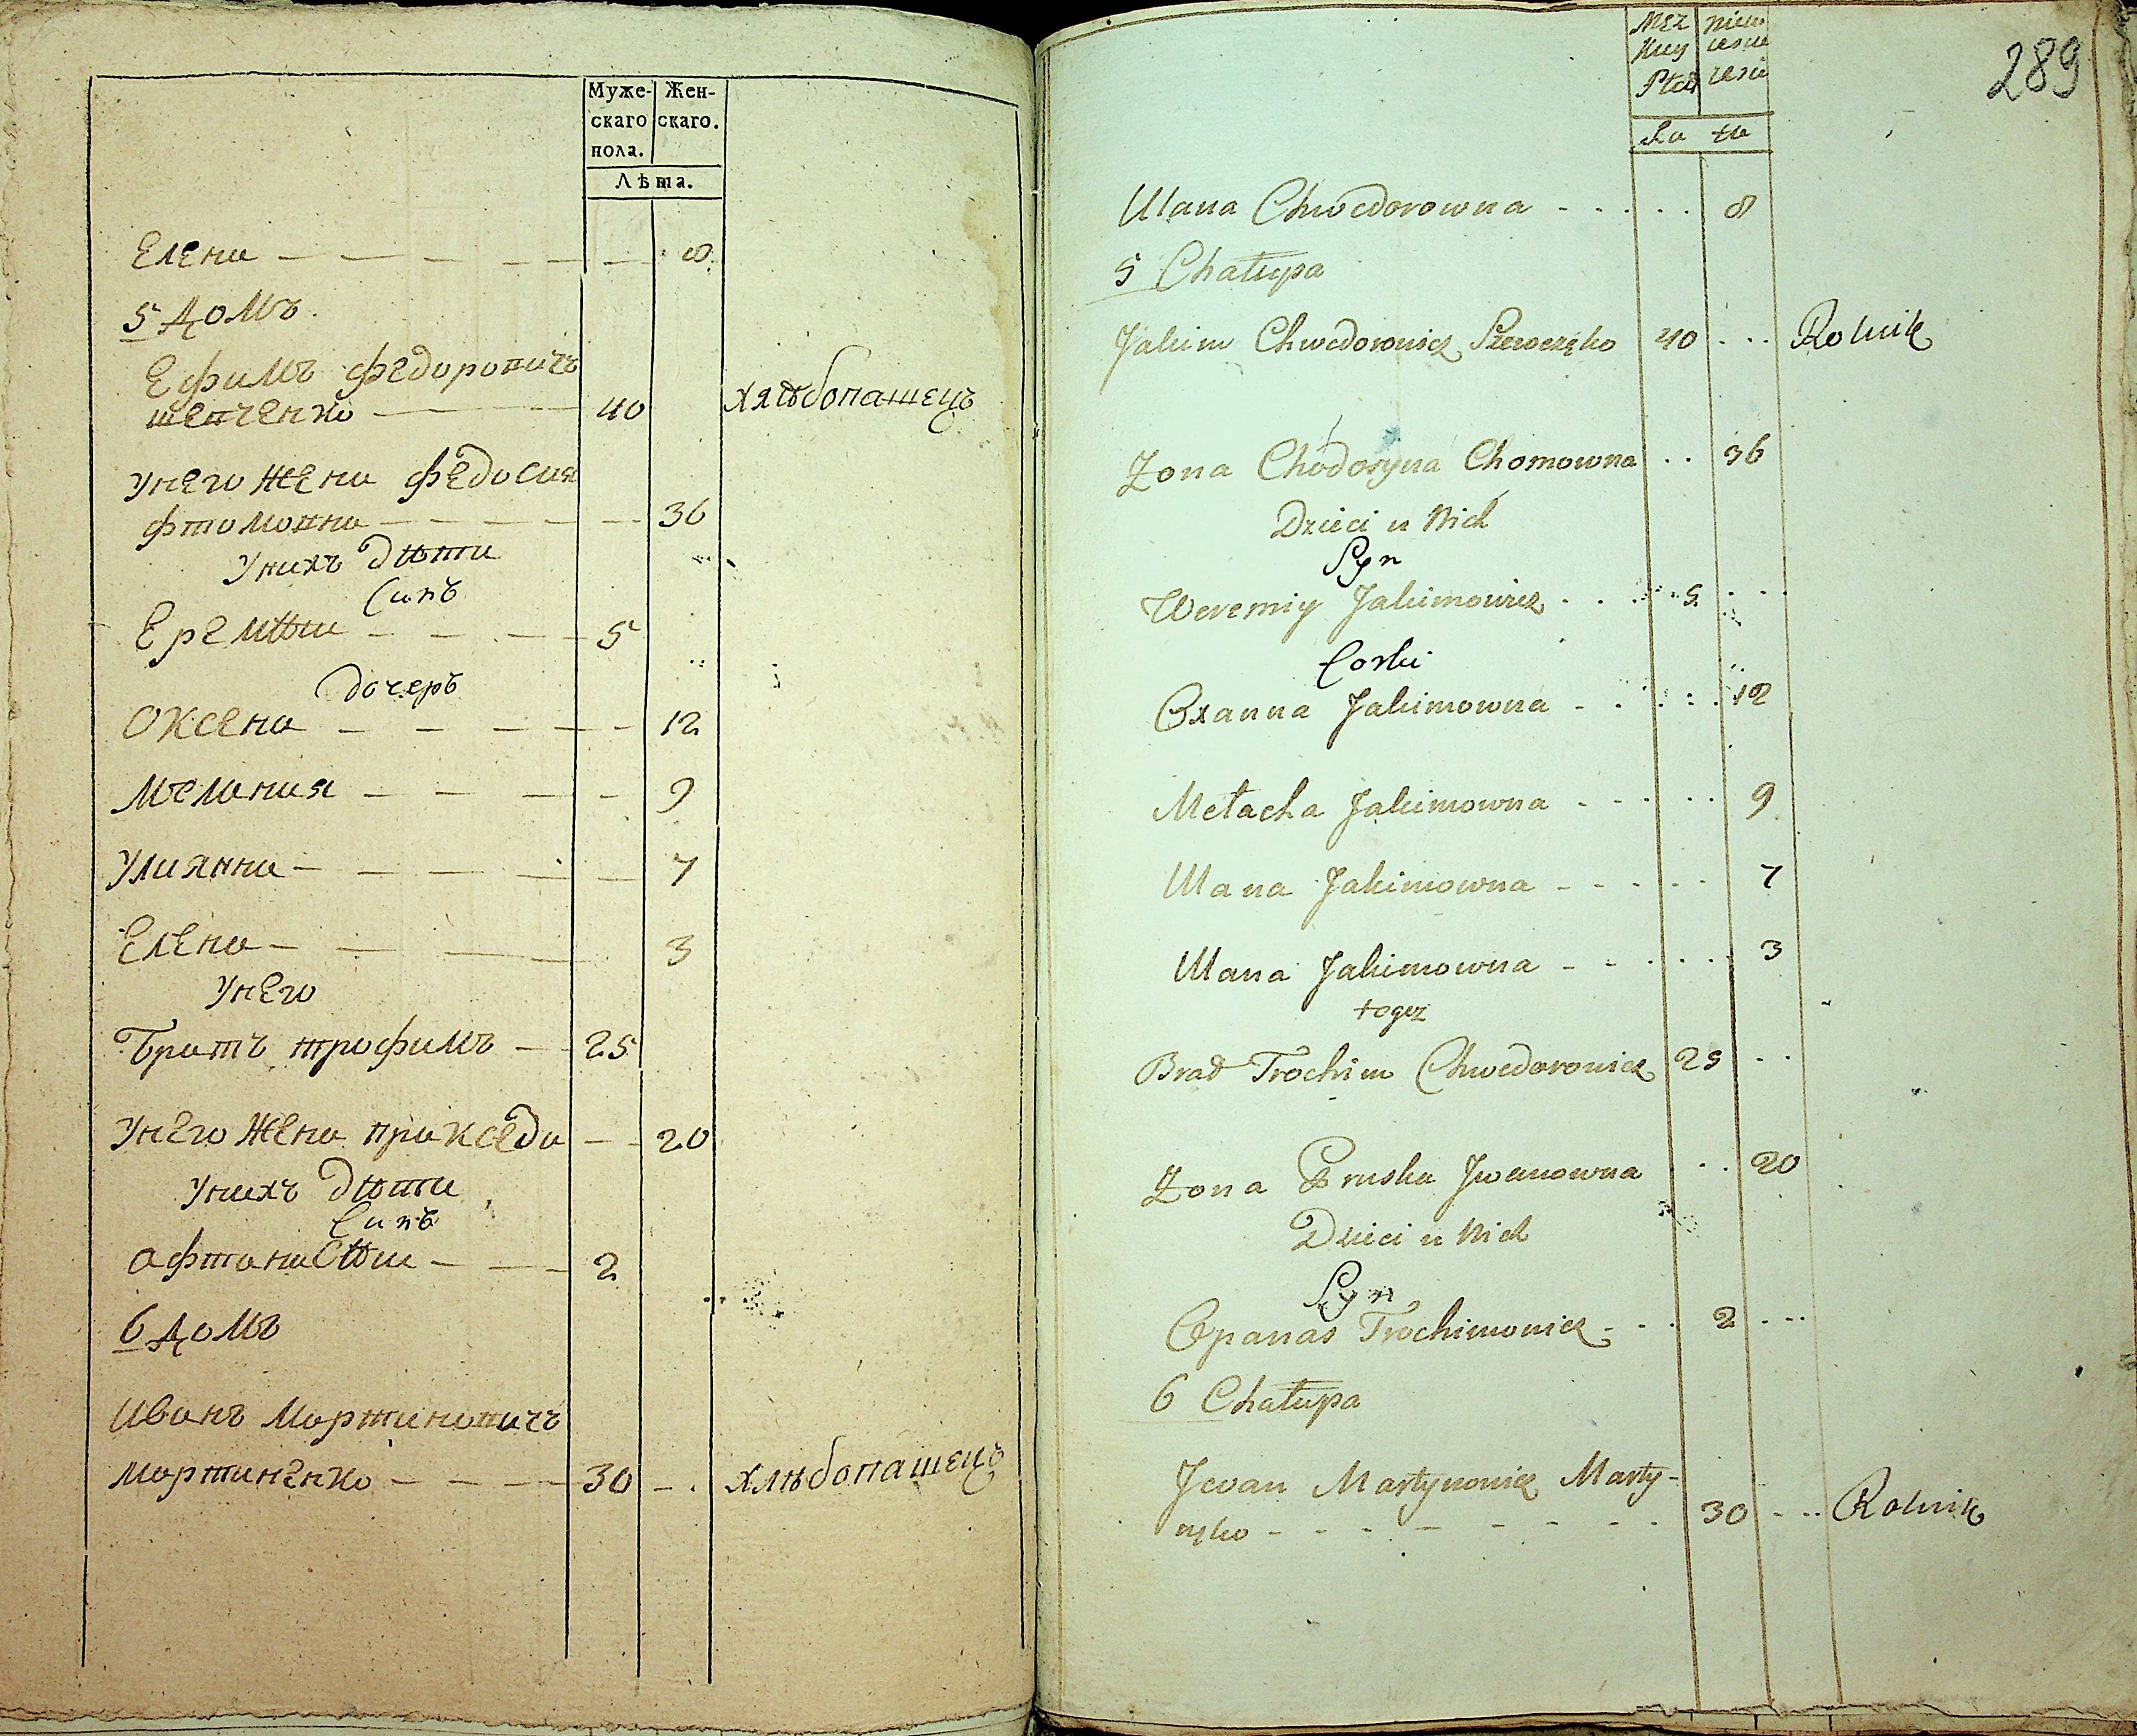 Муже- Жен-
скаго скаго.
пола.
Лѣта.
Елена — — — — — 8
5 домъ
Ефимъ Федоровичъ
шевченко — — 40 хлѣбопашецъ
У него жена Федосия
фтомовна — — — — 36
У нихъ дѣти
Синъ
Еремѣи — — — 5
дочерь
Оксена — — — — 12
Мелания — — — — 9
Улиянна — — — — 7
Елена — — — 3
У него
Братъ трофимъ — 25
У него жена пракседа — 20
У нихъ дѣти
Синъ
афтанасѣи — — 2
6 домъ
Иванъ Мартиновичъ
мартиненко — — — 30 — . хлѣбопашецъ
289
Męz niew
kiey iesci
Płci
La ta
Ulana Chwedorowna - - - - - 8
5 Chałupa
Jakim Chwedorowicz Szewczęko 40 . . . Rolnik
Zona Chodosyna Chomowna . . 36
Dzieci u Nich
Syn
Weremiy Jakimowicz . . . 5 . . .
Corki
Oxanna Jakimowna - . . . . 12
Melacha Jakimowna - - - - - 9
Ulana Jakimowna - - - - - 7
Ulana Jakimowna - - . . . . 3
togoz
Brat Trochim Chwedorowicz 25 . .
Zona Pruska Jwanowna . . 20
Dzieci u Nich
Syn
Opanas Trochimowicz - . . 2 . . .
6 Chałupa
Jwan Martynowicz Marty-
nęko - - - - - - - - 30 . . . Rolnik